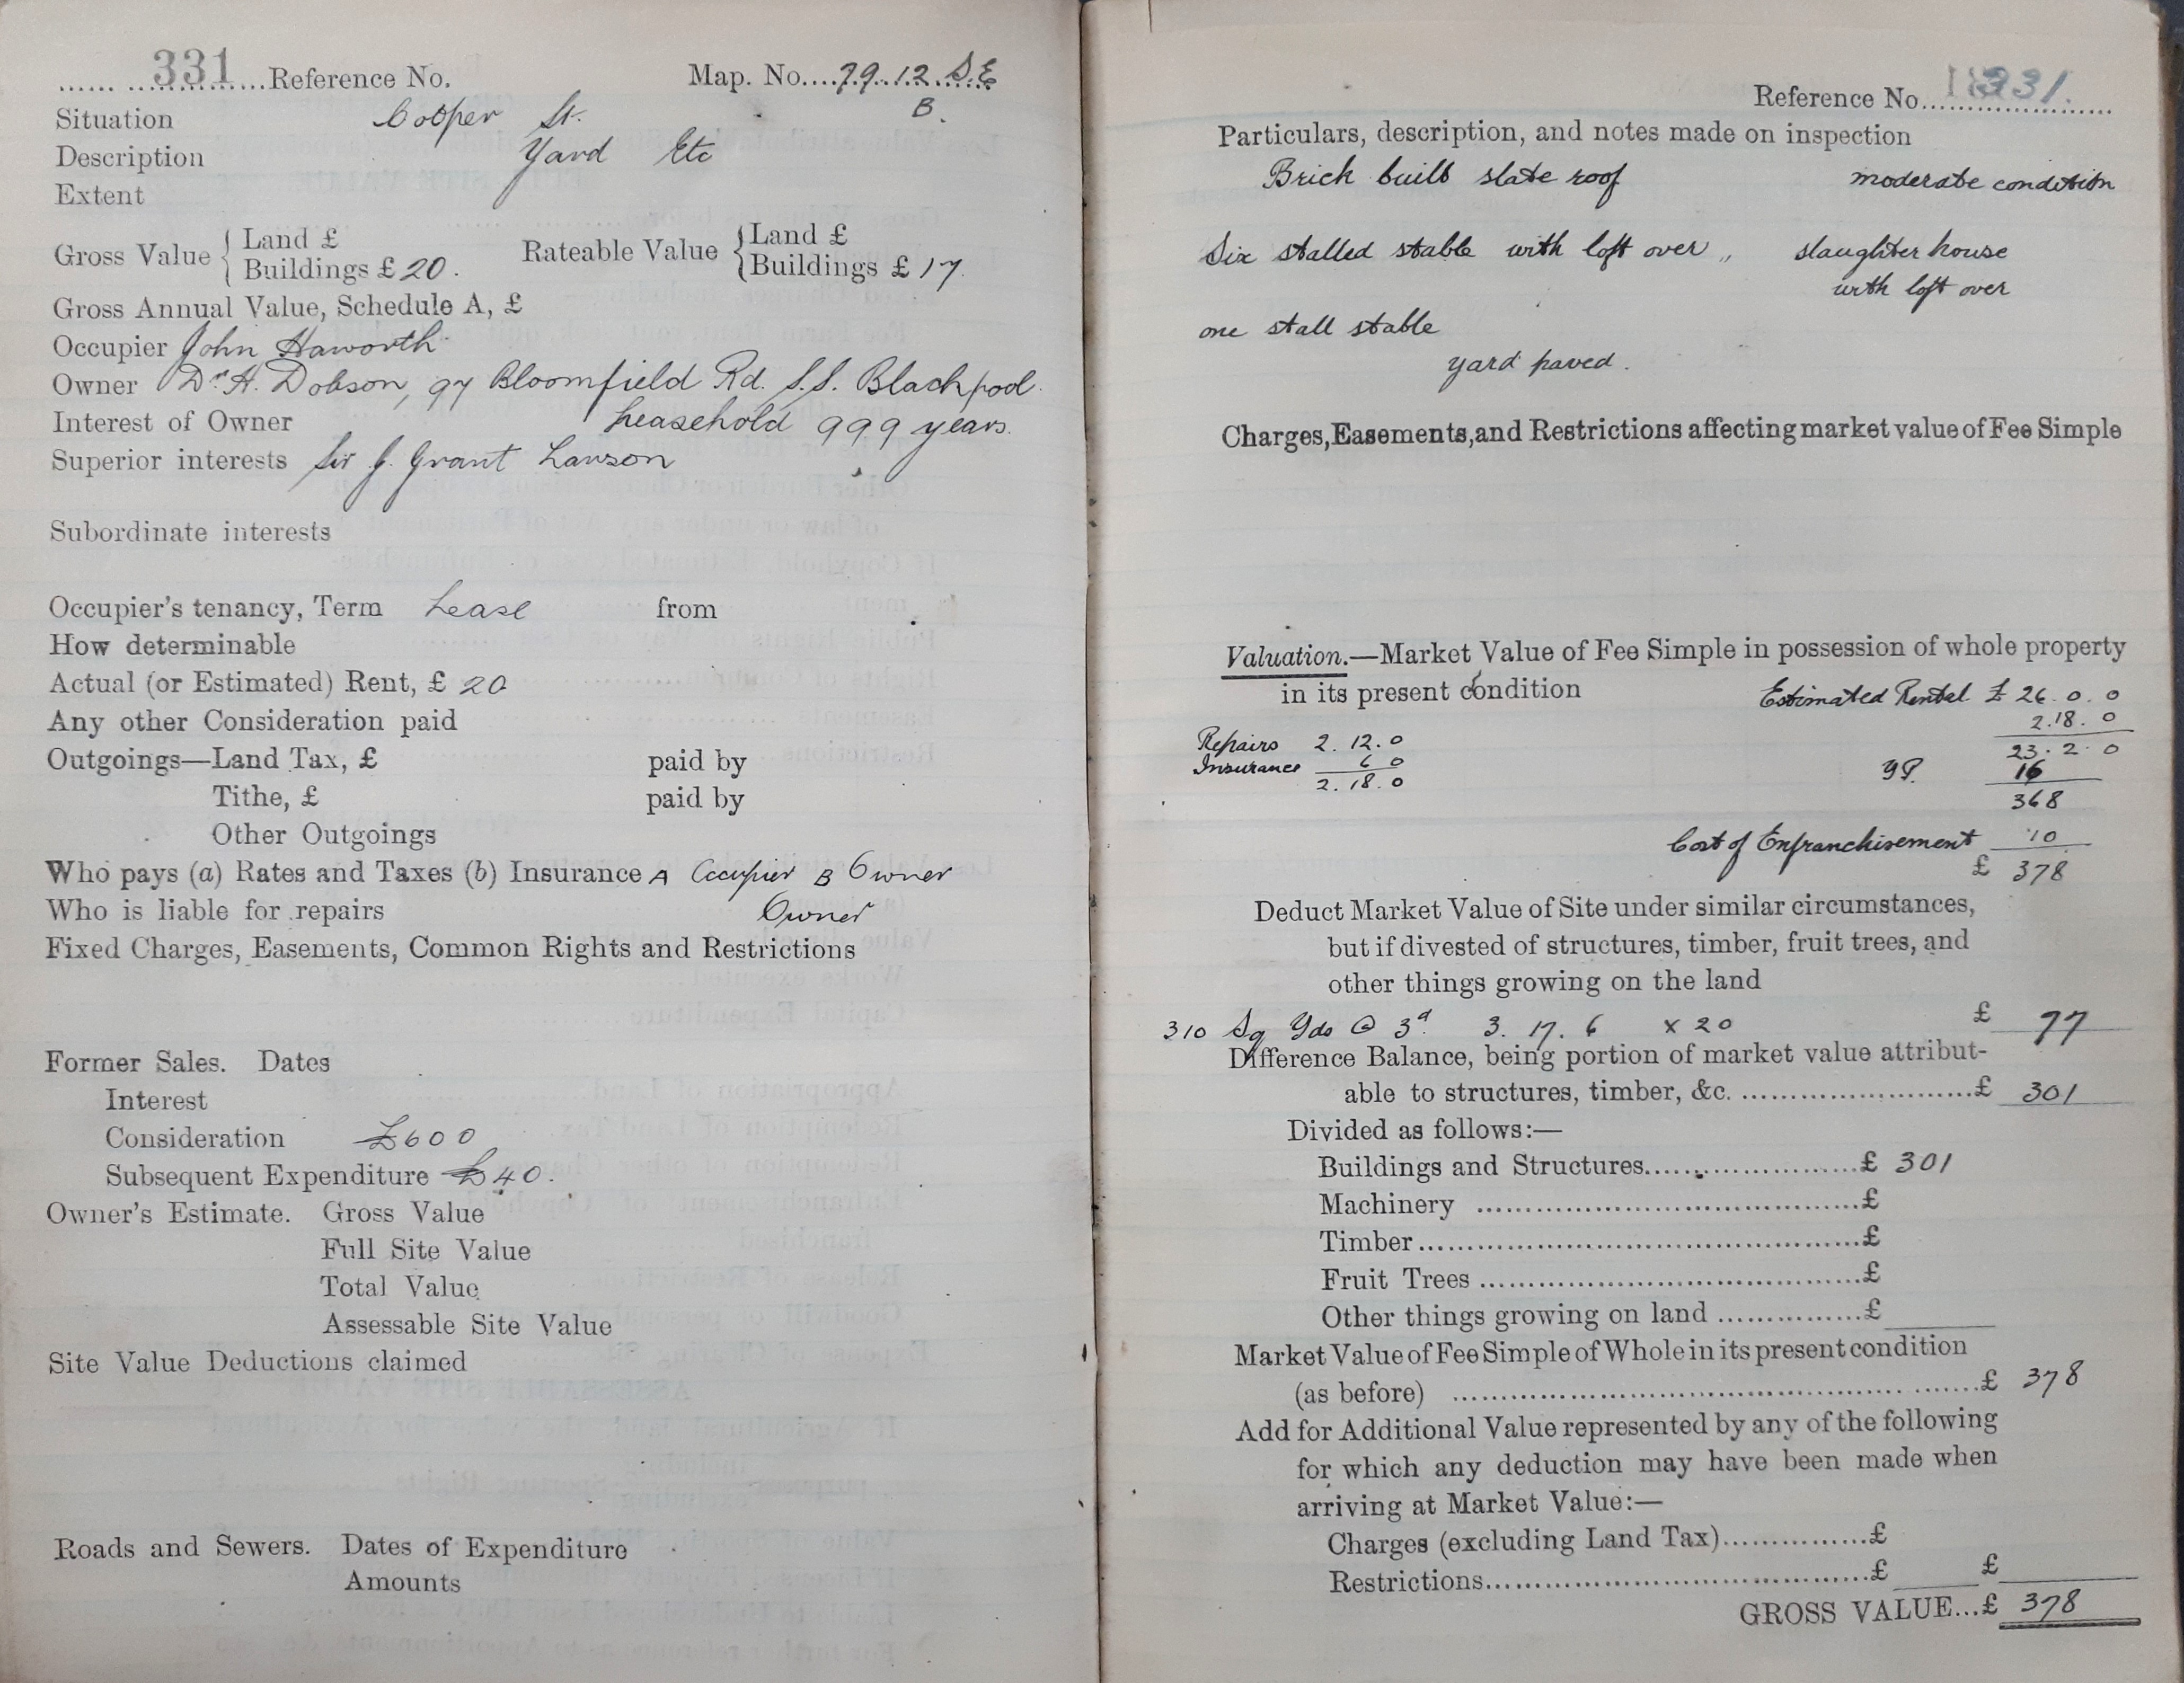 331 Reference No. Map. No. 79.12 S.E
B.
Situation Cooper St.
Description Yard Etc
Extent
Gross Value { Land £ Rateable Value { Land £
Buildings £ 20. Buildings £ 17.
Gross Annual Value, Schedule A, £
Occupier John Haworth
Owner Dr. H. Dobson, 97 Bloomfield Rd. S.S. Blackpool.
Interest of Owner Leasehold 999 years.
Superior interests Sir J. Grant Lawson
Subordinate interests
Occupier's tenancy, Term Lease from
How determinable
Actual (or Estimated) Rent, £ 20
Any other Consideration paid
Outgoings—Land Tax, £ paid by
Tithe, £ paid by
Other Outgoings
Who pays (a) Rates and Taxes (b) Insurance A Occupier B Owner
Who is liable for repairs Owner
Fixed Charges, Easements, Common Rights and Restrictions
Former Sales. Dates
Interest
Consideration £600
Subsequent Expenditure £40.
Owner's Estimate. Gross Value
Full Site Value
Total Value
Assessable Site Value
Site Value Deductions claimed
Roads and Sewers. Dates of Expenditure
Amounts
Reference No. 331.
Particulars, description, and notes made on inspection
Brick built slate roof moderate condition
Six stalled stable with loft over ,, slaughter house
with loft over
one stall stable
yard paved.
Charges, Easements, and Restrictions affecting market value of Fee Simple
Valuation.—Market Value of Fee Simple in possession of whole property
in its present condition Estimated Rental £ 26.0.0
2.18.0
Repairs 2.12.0 23.2.0
Insurance 6 0 YP. 16
2.18.0 368
Cost of Enfranchisement 10
£ 378
Deduct Market Value of Site under similar circumstances,
but if divested of structures, timber, fruit trees, and
other things growing on the land
310 Sq Yds @ 3d 3.17.6 x 20 £ 77
Difference Balance, being portion of market value attribut-
able to structures, timber, &c. ........................£ 301
Divided as follows:—
Buildings and Structures......................£ 301
Machinery ........................................£
Timber..............................................£
Fruit Trees ........................................£
Other things growing on land ...............£
Market Value of Fee Simple of Whole in its present condition
(as before) ........................................................£ 378
Add for Additional Value represented by any of the following
for which any deduction may have been made when
arriving at Market Value:—
Charges (excluding Land Tax)...............£
Restrictions........................................£ £
GROSS VALUE...£ 378